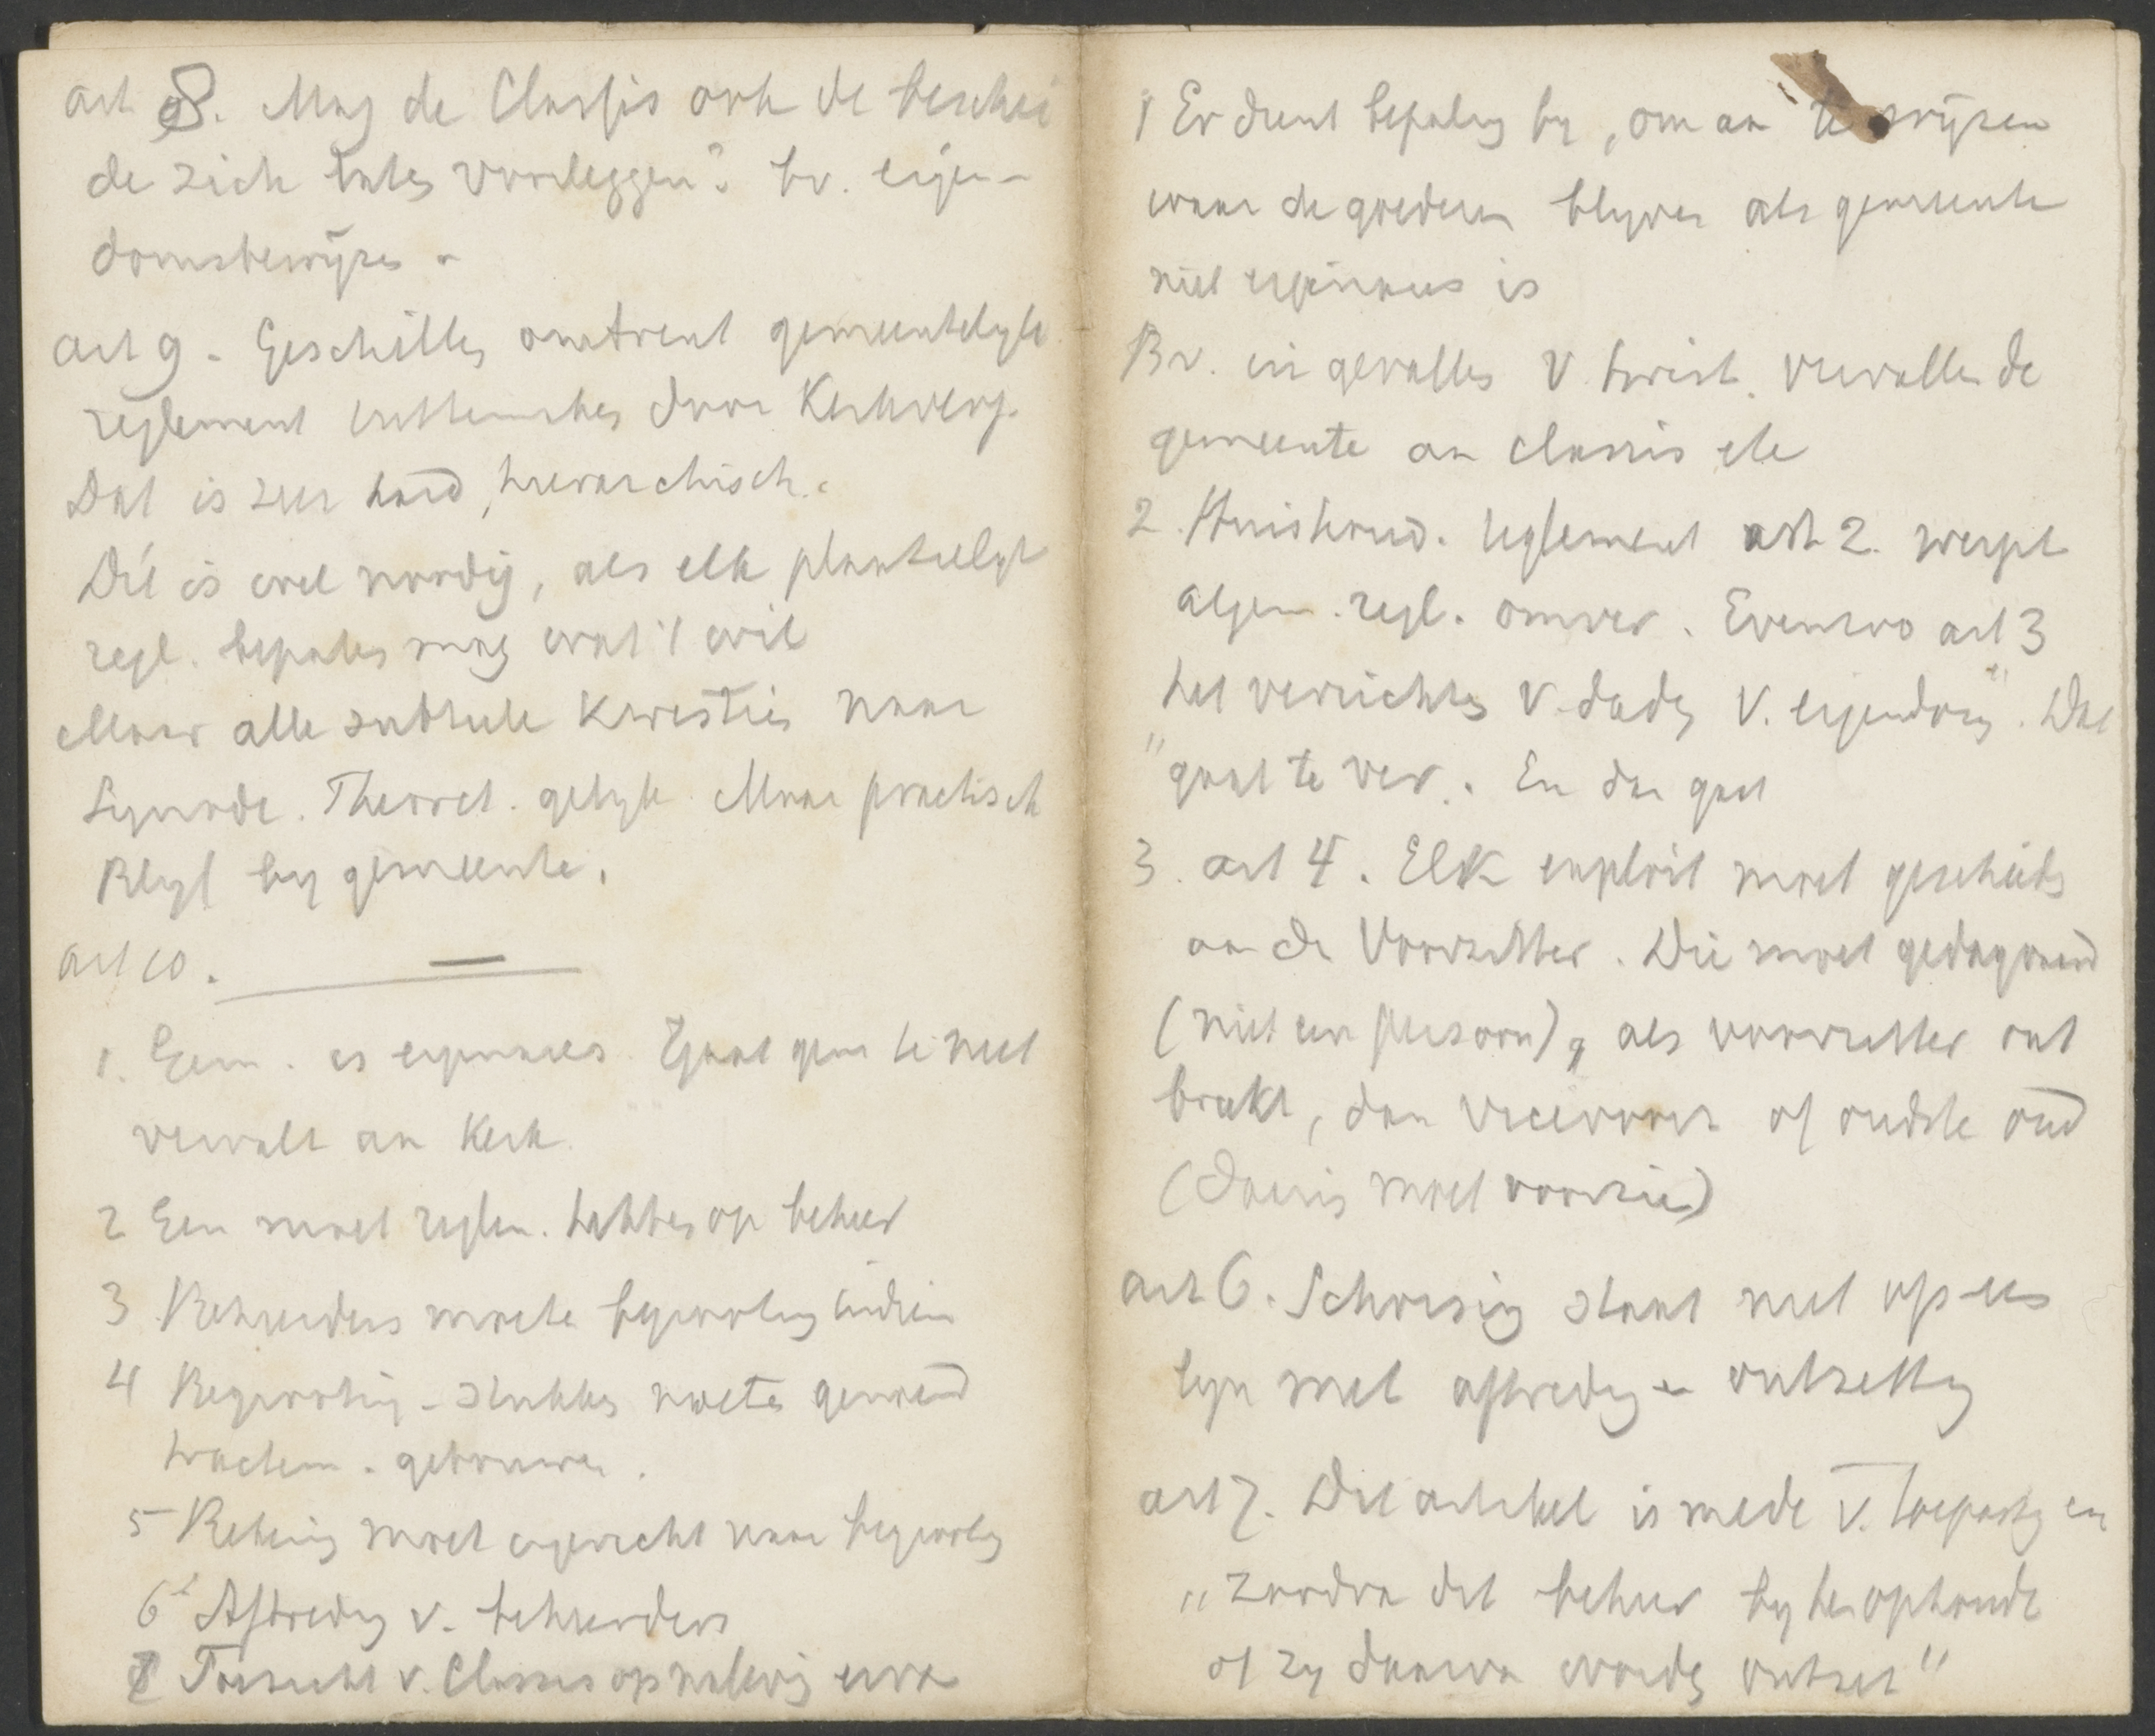 art 8. Mag de Classis ook de beschei
de zich laten voorleggen? bv. eigen-
domsbewijzen -
art 9 - Geschillen omtrent gemeentelyk
reglement door Kerkverg.
Dat is zeer hard, hierarchisch.
Dit is wel noodig, als elk plaatselyk
regl. bepalen mag wat 't wil
Maar alle subtiele kwesties naar
Synode. Theoret. gelyk. Maar practisch
Blyf by gemeente.
art 10.
1. Gem. is eigenares. Gaat gem te niet
vervalt aan Kerk.
2 Een moet reglem. hebben op beheer
3 Beheerders moeten begrooting indien
4 Begrooting - stukken moeten gewaard
tractem. gebouwen.
5 Rekening moet ingericht naar begrooting
6 Aftreding v. beheerders
Toezicht v. Classis op naleving ervan
1 Er dient bepaling by, om aan te wijzen
waar de goederen blyven als gemeente
niet eigenares is
Bv. in gevallen v. twist. vervallen de
gemeente aan classis etc
2. Huishoud. reglement art 2. werpt
algem. regl. omver. Evenzoo art 3
het verrichten v. daden v. eigendom". Dat
"gaat te ver. En dan gaat
3. art 4. Elk exploit moet geschieden
aan de Voorzitter. Die moet gedagvaard
(niet een persoon), als voorzitter ont
breekt, dan vicevoorz. of oudste oud
(daarin moet voorzien)
art 6. Schorsing staat niet op een
lyn met aftreding en ontzetting
art 7. Dit artikel is mede v. toepassing en
"zoodra dit beheer by hen ophoudt
of zy daarvan worden ontzet"